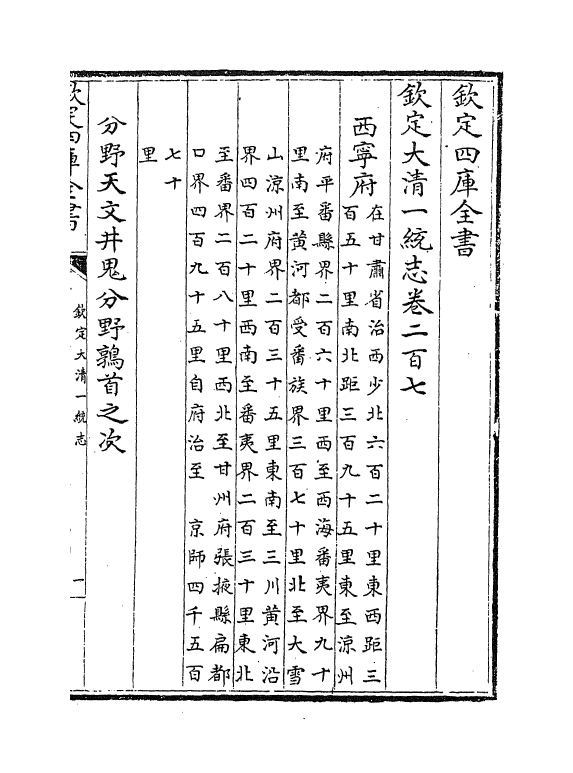 欽定四庫全書
欽定大清一統志卷二百七
西寧府
在甘肅省治西少北六百二十里東西距三
百五十里南北距三百九十五里東至涼州
府平番縣界二百六十里西至西海番夷界九十
里南至黃河都受番族界三百七十里北至大雪
山涼州府界二百三十五里東南至三川黃河沿
界四百二十里西南至番夷界二百三十里東北
至番界二百八十里西北至甘州府張掖縣扁都
口界四百九十五里自府治至 京師四千五百
七十
里
分野天文井鬼分野鶉首之次
欽定四庫全書
欽定大清一統志
一